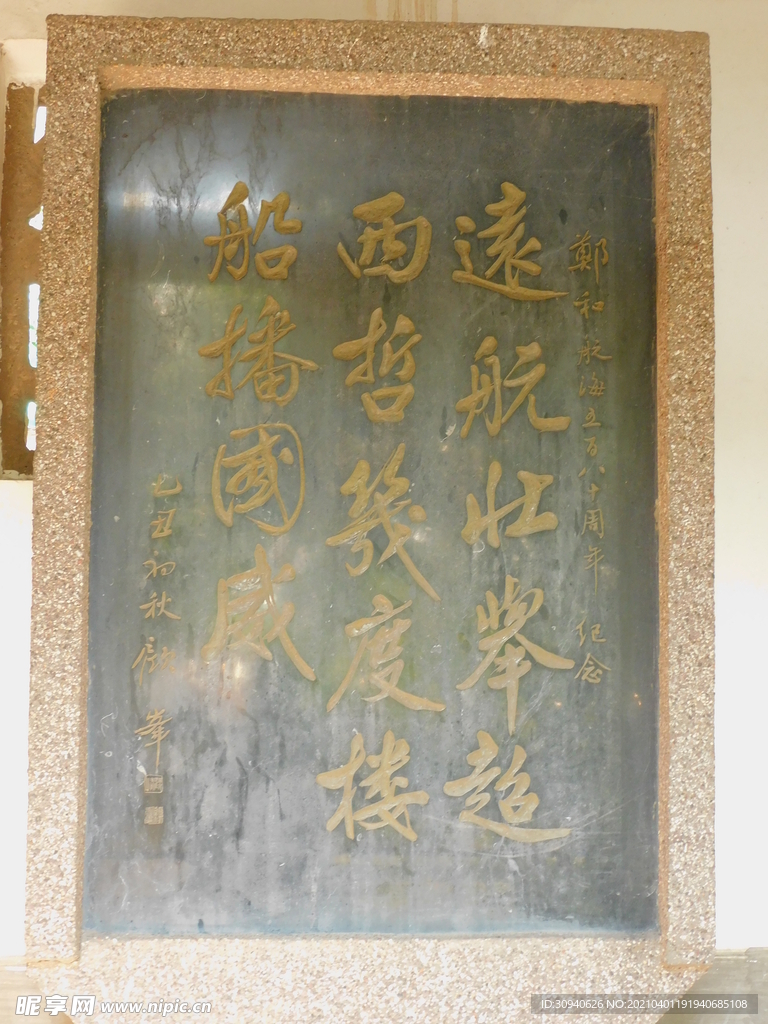 鄭和航海五百八十周年 纪念
遠航壮舉超
西哲幾度楼
船播國威
乙丑初秋
昵享网 www.nipic.cn
ID:30940626 NO:20210401191940685108